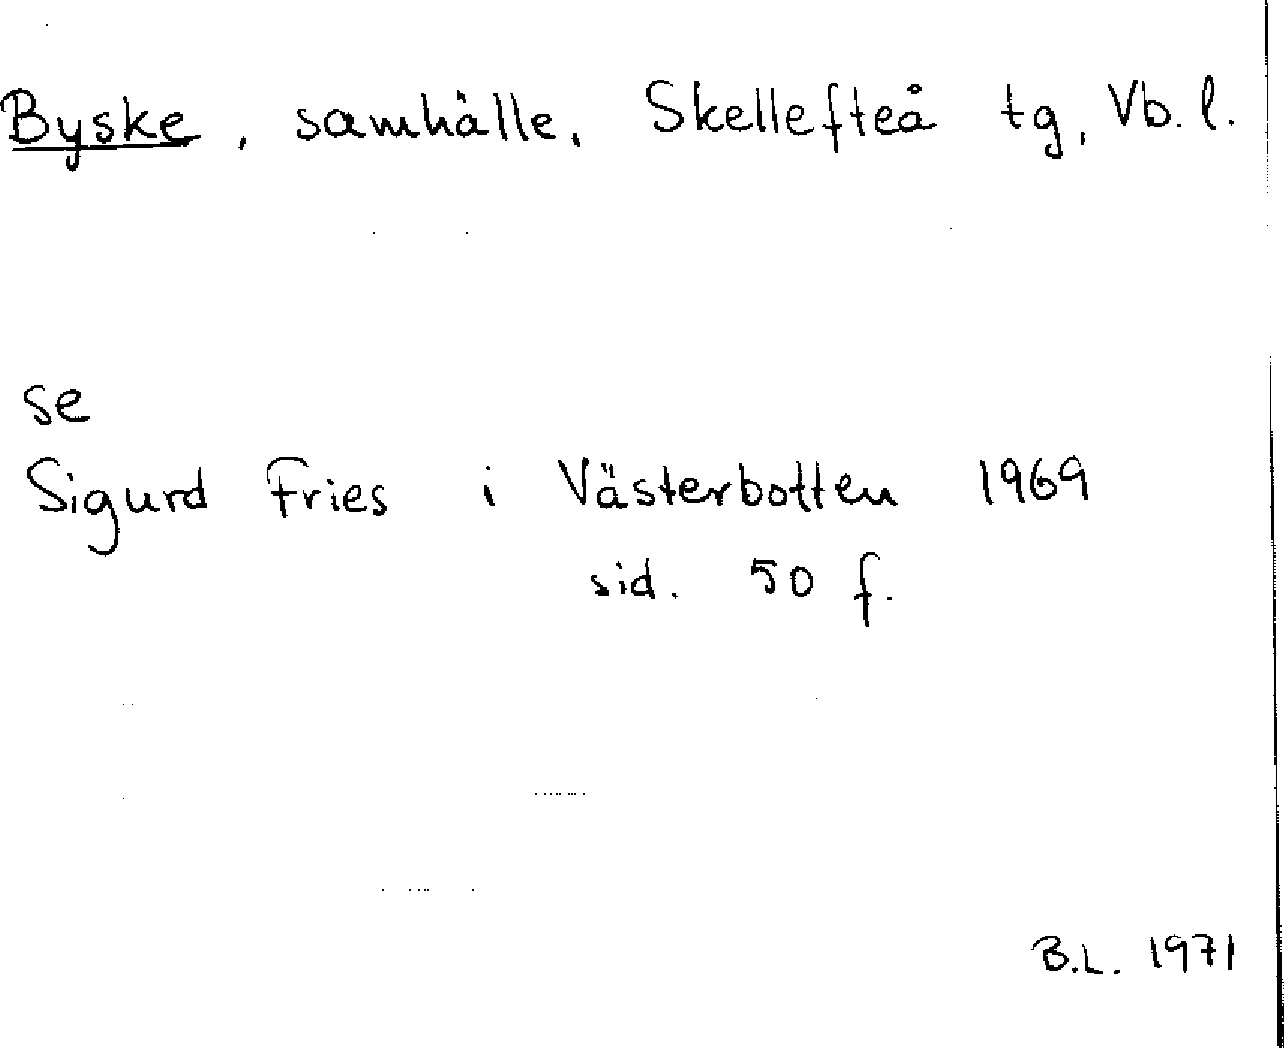 Byske, samhälle, Skellefteå tg, Vb. l.
se
Sigurd Fries i Västerbotten 1969
sid. 50 f.
B.L. 1971